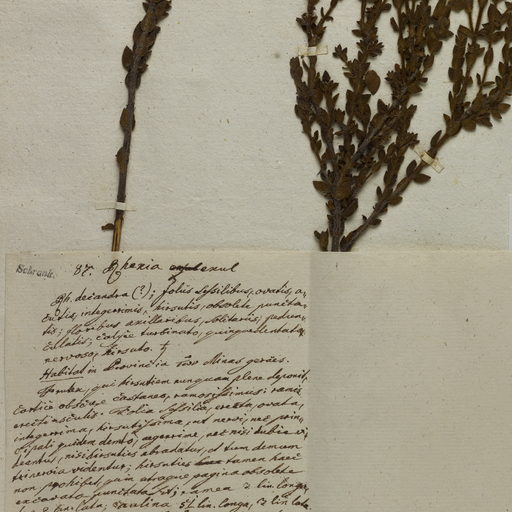 Schrank.
87. Rhexia exul
Rh. decandra (?); foliis sessilibus, ovatis, a-
cutis, integerrimis, hirsutis, obsolete puncta-
tis; floribus axillaribus, solitariis, pedun-
culatis; calyce turbinato, quinquedentato,
nervoso, hirsuto. ♄
Habitat in Provincia Minas geraës.
Frutex, qui hirsutiem nunquam plene deponit,
cortice obscure castaneo, ramosissimus: ramis
erectiusculis. Folia sessilia, ovata,
integerrima, hirsutissima, ut nervi, nec prin-
cipali quidem demto, aegerrime, nec nisi dubie vi-
deantur, nisi hirsuties abradatur, at tum demum
trinervia videntur; hirsuties tamen haec
non prohibet, quin utraque pagina obsolete
excavato punctata sit; ramea 2 lin. longa,
lin. lata, caulina lin. longa, lin. lata